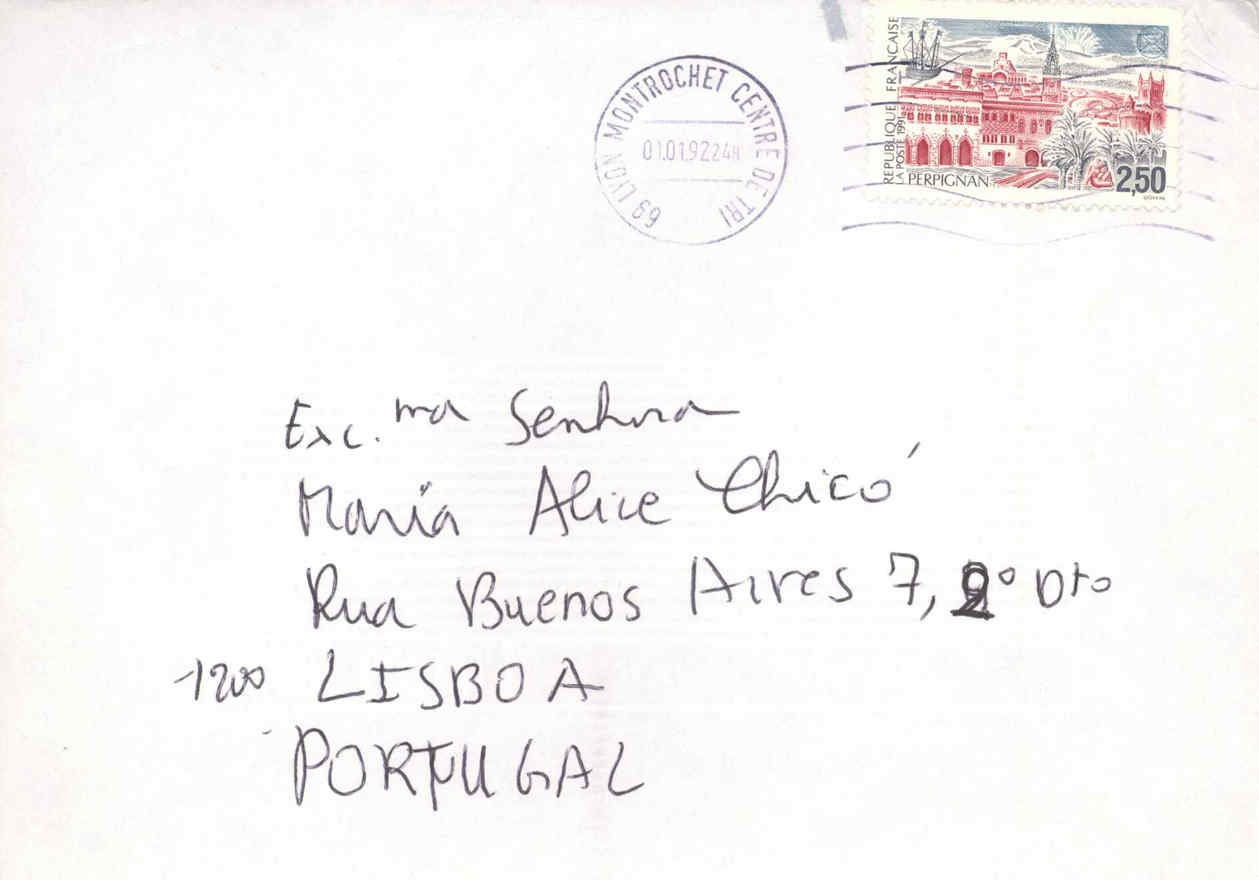 69 LYON MONTROCHET CENTRE DE TRI
01.01.92 24H
REPUBLIQUE FRANCAISE
LA POSTE 1991
PERPIGNAN
2,50
Exc.ma Senhora
Maria Alice Chicó
Rua Buenos Aires 7, 2º Dto
1200 LISBOA
PORTUGAL